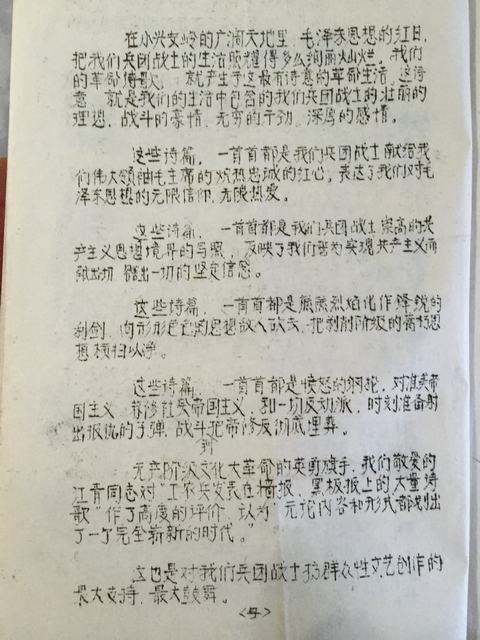 在小兴安岭的广阔天地里，毛泽东思想的红日，
把我们兵团战士的生活照耀得多么绚丽灿烂。我们
的革命诗歌，就产生于这最有诗意的革命生活。这诗
意，就是我们的生活中包含的我们兵团战士的壮丽的
理想，战斗的豪情，无穷的干劲，深厚的感情。
这些诗篇，一首首都是我们兵团战士献给我
们伟大领袖毛主席的炽热忠诚的红心。表达了我们对毛
泽东思想的无限信仰，无限热爱。
这些诗篇，一首首都是我们兵团战士崇高的共
产主义思想境界的写照，反映了我们誓为实现共产主义而
献出一切的坚定信念。
这些诗篇，一首首都是熊熊烈焰化作锋锐的
利剑，向形形色色的思想敌人砍去，把剥削阶级的腐朽思
想横扫以净。
这些诗篇，一首首都是愤怒的钢枪，对准美帝
国主义、苏修社会帝国主义，和一切反动派，时刻准备射
出报仇的子弹，战斗到把帝修反彻底埋葬。
无产阶级文化大革命的英勇旗手，我们敬爱的
江青同志对“工农兵发表在墙报、黑板报上的大量诗
歌”作了高度的评价，认为“无论内容和形式都划出
了一个完全崭新的时代。”
这也是对我们兵团战士搞群众性文艺创作的
最大支持，最大鼓舞。